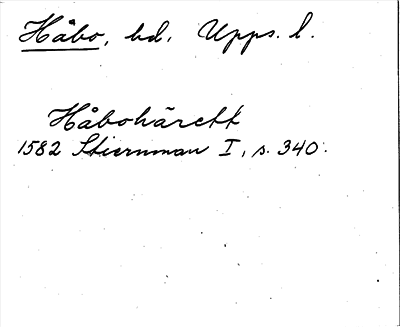 Håbo, hd, Upps. l.
Håbohärett
1582 Stiernman I, s. 340.